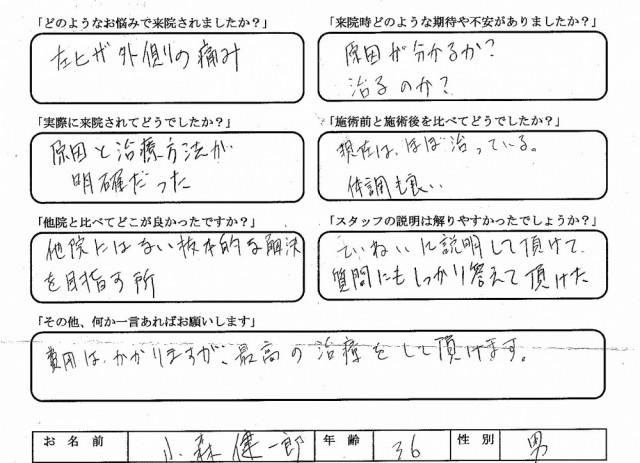 「どのようなお悩みで来院されましたか？」
左ヒザ外側の痛み
「来院時どのような期待や不安がありましたか？」
原因が分かるか？
治るのか？
「実際に来院されてどうでしたか？」
原因と治療方法が
明確だった
「施術前と施術後を比べてどうでしたか？」
現在は、ほぼ治っている。
体調も良い
「他院と比べてどこが良かったですか？」
他院にはない抜本的な解決
を目指す所
「スタッフの説明は解りやすかったでしょうか？」
ていねいに説明して頂けて、
質問にもしっかり答えて頂けた
「その他、何か一言あればお願いします」
費用は、かかりますが、最高の治療をして頂けます。
お名前 小森健一郎 年齢 36 性別 男